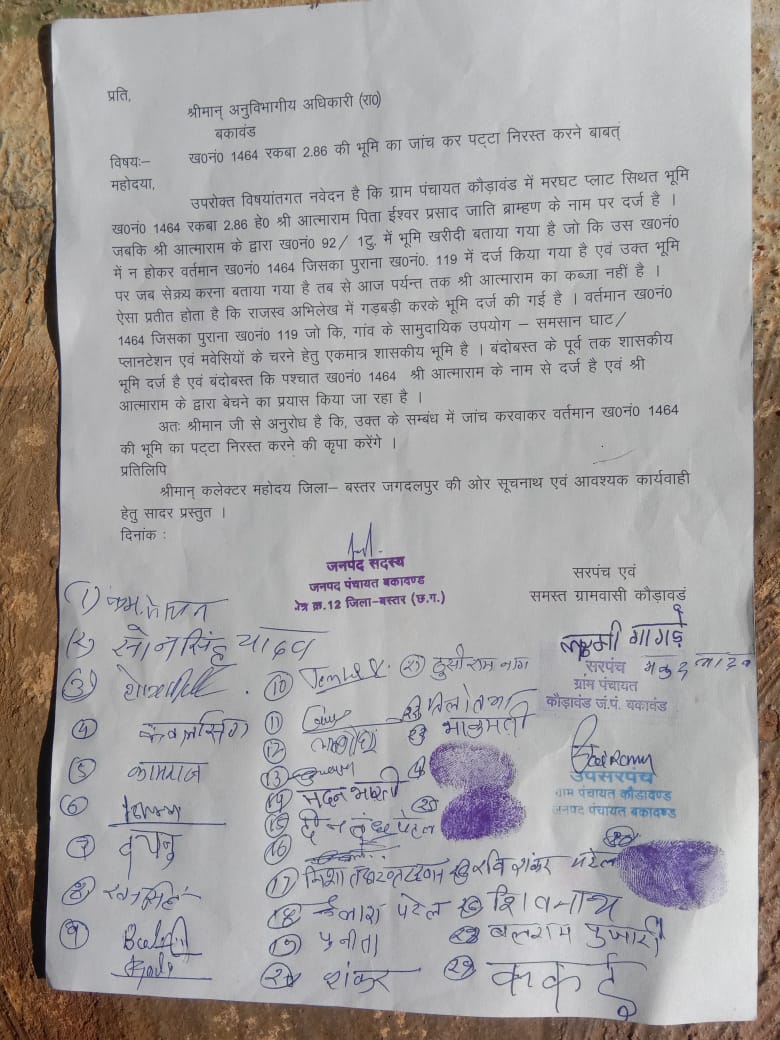 प्रति,
श्रीमान् अनुविभागीय अधिकारी (रा0)
बकावंड
विषयः– ख0नं0 1464 रकबा 2.86 की भूमि का जांच कर पट्टा निरस्त करने बाबत्
महोदया,
उपरोक्त विषयांतगत नवेदन है कि ग्राम पंचायत कौड़ावंड में मरघट प्लाट सिथत भूमि
ख0नं0 1464 रकबा 2.86 हे0 श्री आत्माराम पिता ईश्वर प्रसाद जाति ब्राम्हण के नाम पर दर्ज है ।
जबकि श्री आत्माराम के द्वारा ख0नं0 92/ 1टु. में भूमि खरीदी बताया गया है जो कि उस ख0नं0
में न होकर वर्तमान ख0नं0 1464 जिसका पुराना ख0नं0. 119 में दर्ज किया गया है एवं उक्त भूमि
पर जब सेक्रय करना बताया गया है तब से आज पर्यन्त तक श्री आत्माराम का कब्जा नहीं है ।
ऐसा प्रतीत होता है कि राजस्व अभिलेख में गड़बड़ी करके भूमि दर्ज की गई है । वर्तमान ख0नं0
1464 जिसका पुराना ख0नं0 119 जो कि, गांव के सामुदायिक उपयोग – समसान घाट/
प्लानटेशन एवं मवेसियों के चरने हेतु एकमात्र शासकीय भूमि है । बंदोबस्त के पूर्व तक शासकीय
भूमि दर्ज है एवं बंदोबस्त कि पश्चात ख0नं0 1464 श्री आत्माराम के नाम से दर्ज है एवं श्री
आत्माराम के द्वारा बेचने का प्रयास किया जा रहा है ।
अतः श्रीमान जी से अनुरोध है कि, उक्त के सम्बंध में जांच करवाकर वर्तमान ख0नं0 1464
की भूमि का पट्टा निरस्त करने की कृपा करेंगे ।
प्रतिलिपि
श्रीमान् कलेक्टर महोदय जिला– बस्तर जगदलपुर की ओर सूचनाथ एवं आवश्यक कार्यवाही
हेतु सादर प्रस्तुत ।
दिनांक :
जनपद सदस्य
जनपद पंचायत बकावण्ड
क्षेत्र क्र.12 जिला-बस्तर (छ.ग.)
सरपंच एवं
समस्त ग्रामवासी कौड़ावडं
सरपंच
ग्राम पंचायत
कौड़ावंड जं.पं. बकावंड
उपसरपंच
ग्राम पंचायत कौडावण्ड
जनपद पंचायत बकावण्ड
(1)
(2) सोनसिंह यादव
(3)
4
5
6
7
8
9
10
11
12
13
14
15
16
17
18 कैलाश पटेल
19 प्रनीता
20 शंकर
21
रवि शंकर पटेल
शिवनाथ
बलराम पुजारी